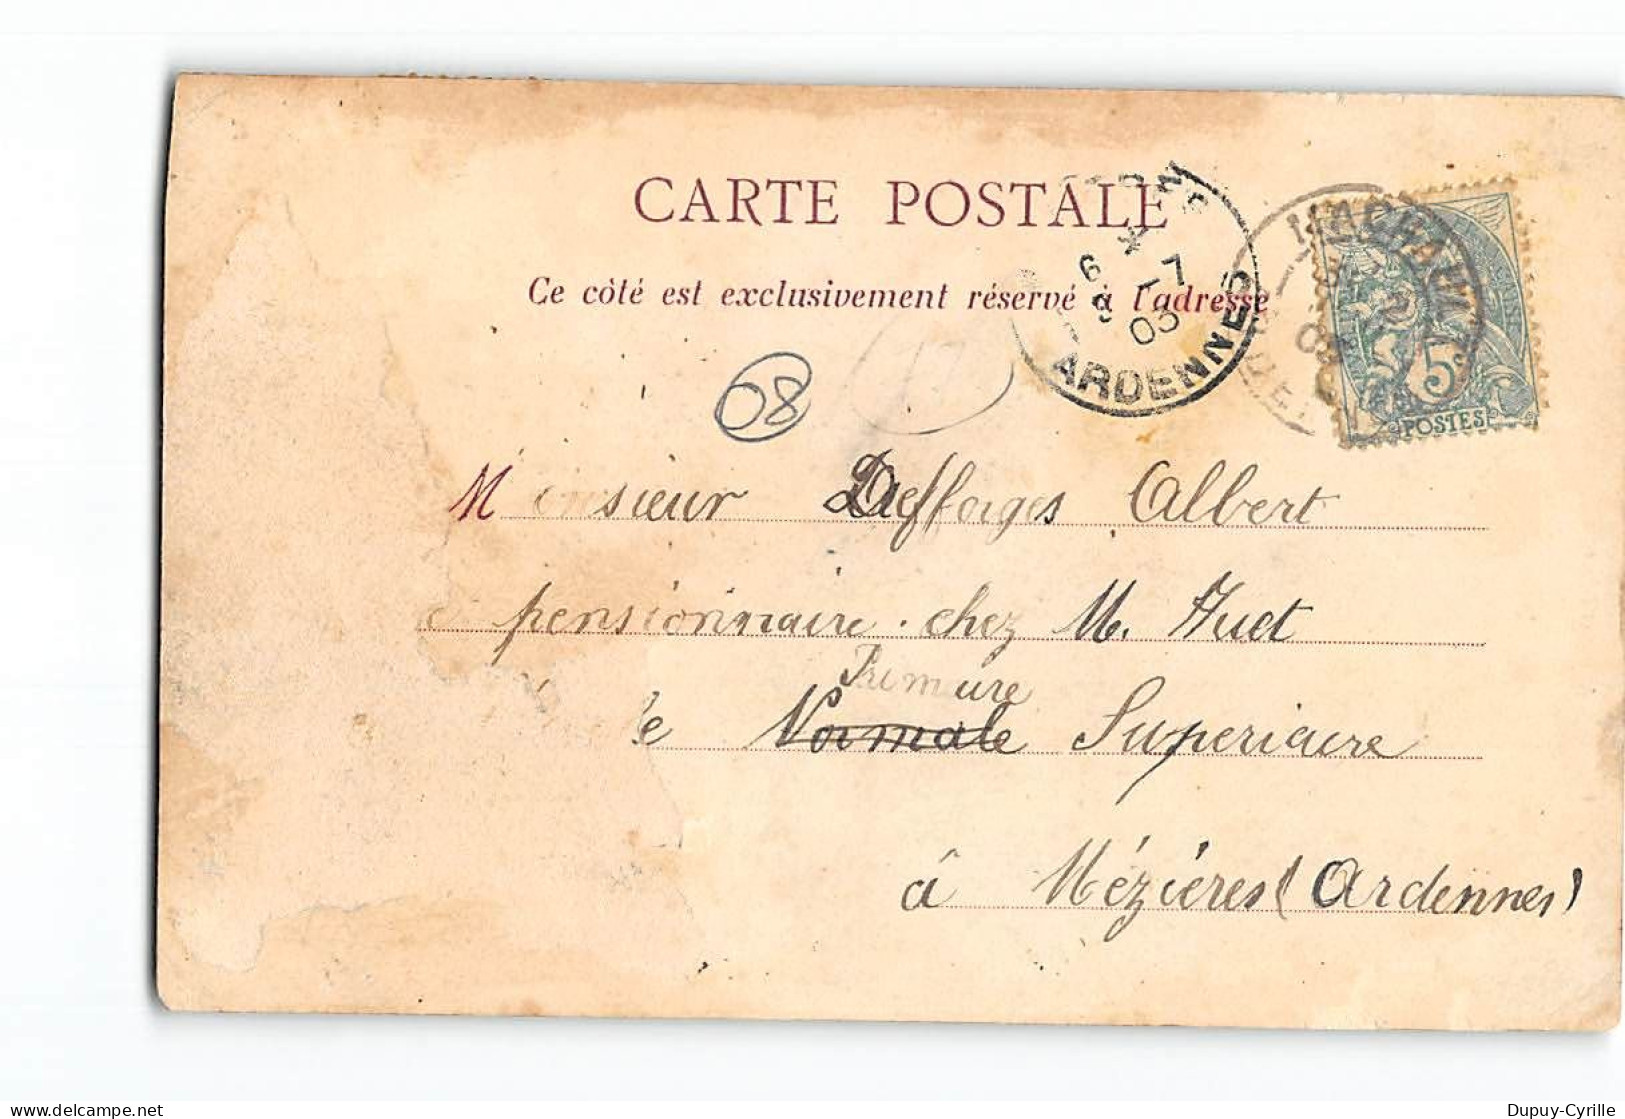 CARTE POSTALE
Ce côté est exclusivement réservé à l'adresse
6 * -7
05
ARDENNES
MACHAULT
5
POSTES
08
17
Monsieur Defforges Albert
pensionnaire chez M. Huet
Primaire
Normale Superieure
à Mézières (Ardennes)
Dupuy-Cyrille